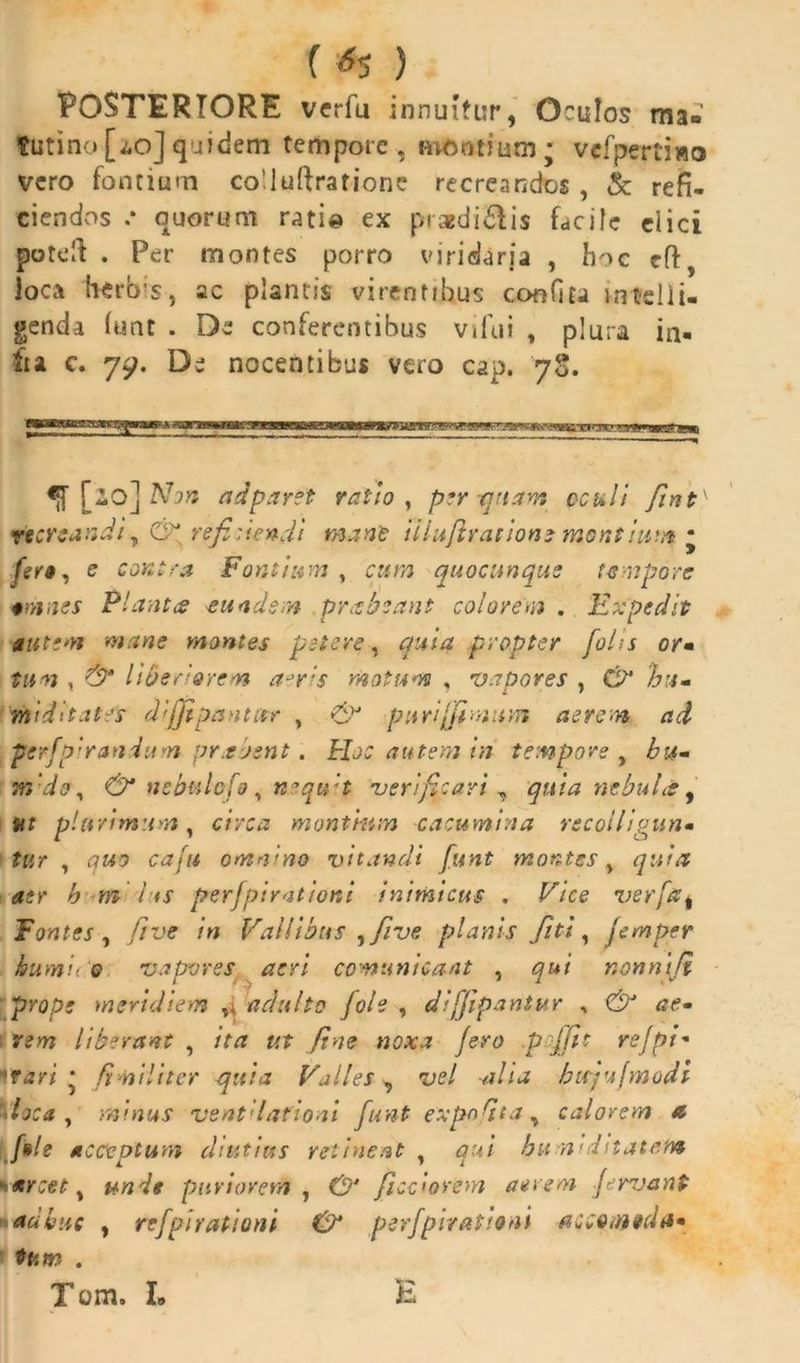 ( 65 )
POSTERIORE verſu innuitur, Oculos ma-
tutino [20] quidem tempore, montium; veſpertino
vero fontium colluſtratione recreandos, & refi-
ciendos: quorum ratio ex prædictis facile elici
poteſt. Per montes porro viridaria, hoc eſt,
loca herbis, ac plantis virentibus conſita intelli-
genda ſunt. De conferentibus viſui, plura in-
fra c. 79. De nocentibus vero cap. 78.
¶ [20] Non adparet ratio, per quam oculi ſint
recreandi, & reficiendi mane illuſtratione montium;
ſero, e contra Fontium, cum quocunque tempore
omnes Plantæ eundem præbeant colorem. Expedit
autem mane montes petere, quia propter ſolis or-
tum, & liberiorem aeris motum, vapores, & hu-
miditates diſſipantur, & puriſſimum aerem ad
perſpirandum præbent. Hoc autem in tempore, hu-
mido, & nebuloſo, nequit verificari, quia nebulæ,
ut plurimum, circa montium cacumina recolligun-
tur, quo caſu omnino vitandi ſunt montes, quia
aer humidus perſpirationi inimicus. Vice verſa,
Fontes, ſive in Vallibus, ſive planis ſiti, ſemper
humido vapores aeri comunicant, qui nonniſi
prope meridiem, adulto ſole, diſſipantur, & ae-
rem liberant, ita ut ſine noxa ſero poſſit reſpi-
rari; ſimiliter quia Valles, vel alia hujuſmodi
loca, minus ventilationi ſunt expoſita, calorem a
ſole acceptum diutius retinent, qui humiditatem
arcet, unde puriorem, & ſicciorem aerem ſervant
adhuc, reſpirationi & perſpirationi accomoda-
tum.
Tom. I. E